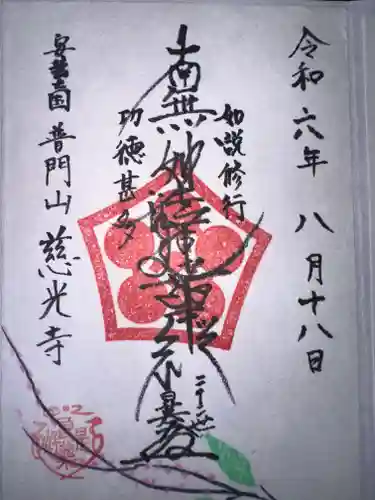 令和六年 八月十八日
如説修行
南無妙法蓮華経
功徳甚多
二十二世
安芸国 普門山 慈光寺